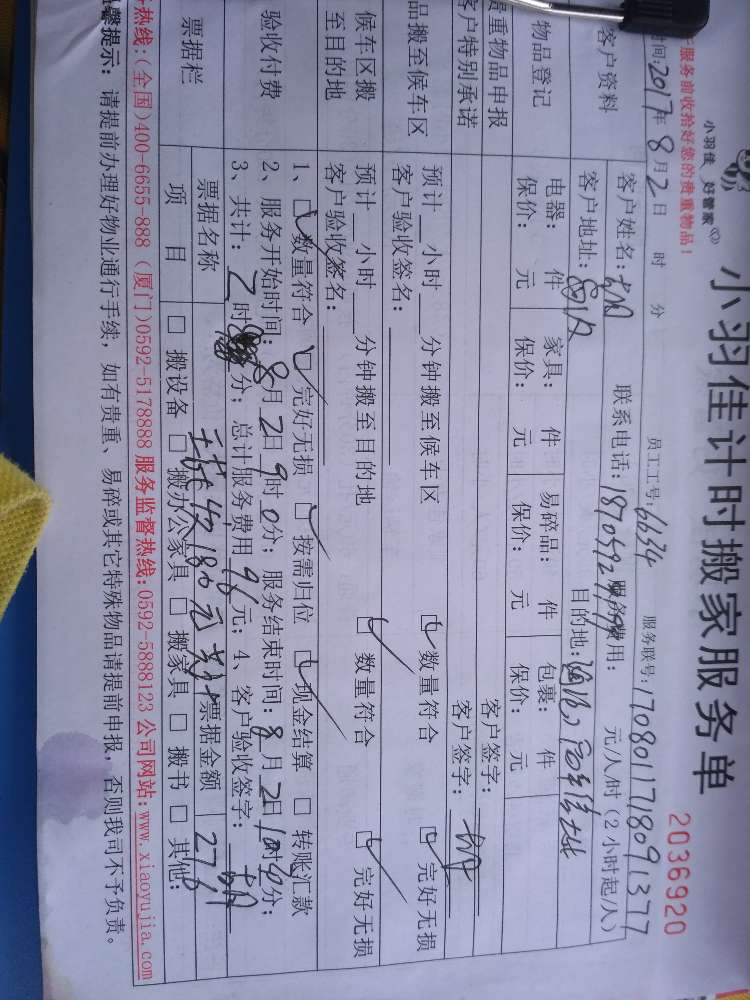 小羽佳 好管家
小羽佳计时搬家服务单
2036920
服务前收拾好您的贵重物品!
员工工号: 6634 服务联号: 1708011718091377
时间: 2017年8月2日 时 分
客户资料
客户姓名: 联系电话: 服务费用: 元/人/时(2小时起/人)
客户地址: 目的地:
物品登记
电器: 件 家具: 件 易碎品: 件 包裹: 件
保价: 元 保价: 元 保价: 元 保价: 元
贵重物品申报 客户签字:
客户特别承诺 客户签字:
品搬至候车区
预计 小时 分钟搬至候车区 数量符合 完好无损
客户验收签名:
候车区搬至目的地
预计 小时 分钟搬至目的地 数量符合 完好无损
客户验收签名:
验收付费
1、□数量符合 □完好无损 □按需归位 □现金结算 □转账汇款
2、服务开始时间: 8月2日9时0分; 服务结束时间: 8月2日 时 分;
3、共计: 2时 分; 总计服务费用 96元; 4、客户验收签字:
票据栏
票据名称 180元 票据金额 276
项目 □搬设备 □搬办公家具 □搬家具 □搬书 □其他:
热线:(全国)400-6655-888 (厦门)0592-5178888 服务监督热线:0592-5888123 公司网站:www.xiaoyujia.com
馨提示: 请提前办理好物业通行手续, 如有贵重、易碎或其它特殊物品请提前申报, 否则我司不予负责。